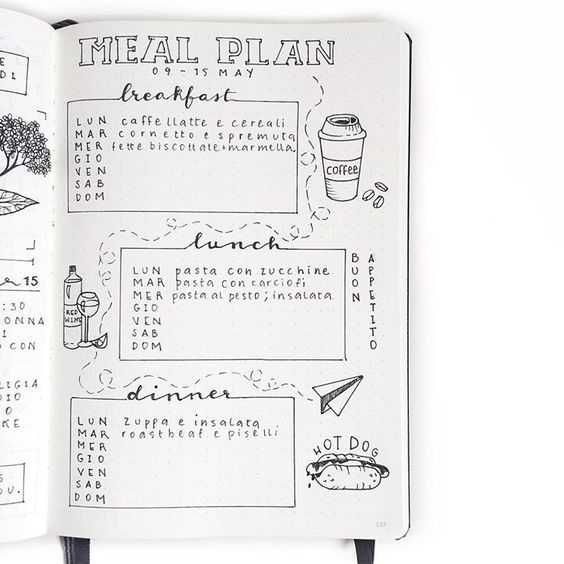 MEAL PLAN
09 - 15 MAY
breakfast
LUN caffellatte e cereali
MAR cornetto e spremuta
MER fette biscottate + marmella.
GIO
VEN
SAB
DOM
coffee
lunch
LUN pasta con zucchine
MAR pasta con carciofi
MER pasta al pesto; insalata
GIO
VEN
SAB
DOM
BUON
APPETITO
RED
WINE
dinner
LUN zuppa e insalata
MAR roastbeaf e piselli
MER
GIO
VEN
SAB
DOM
HOT DOG
E
DI
15
:30
ONNA
CON
LIGIA
DI
O
KE
S
DU.